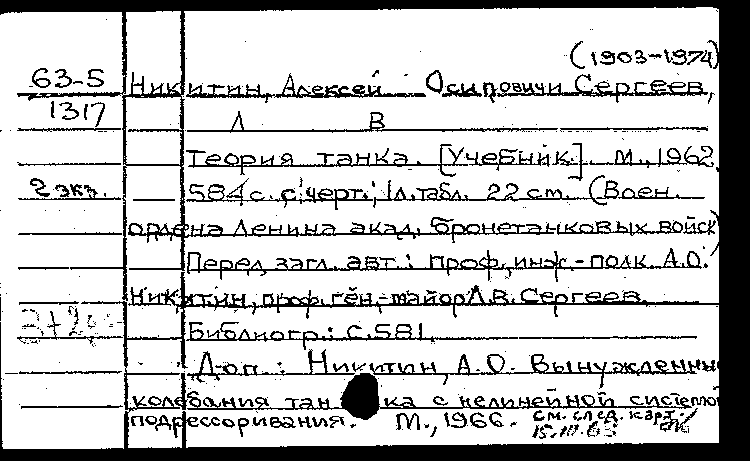 (1903-1974)
63-5 Никитин, Алексей Осипович и Сергеев,
1317 Л В
Теория танка. [Учебник]. М., 1962.
2 экз. 584 с. с черт.; 1 л. табл. 22 cm. (Воен.
ордена Ленина акад. бронетанковых войск)
Перед загл. авт.: проф., инж.-полк. А.О.
Никитин, проф. ген.-майор Л.В. Сергеев.
Библиогр.: с. 581.
Доп.: Никитин, А.О. Вынужденные
колебания тан ка с нелинейной системой
подрессоривания. М., 1966. см. след. карт.